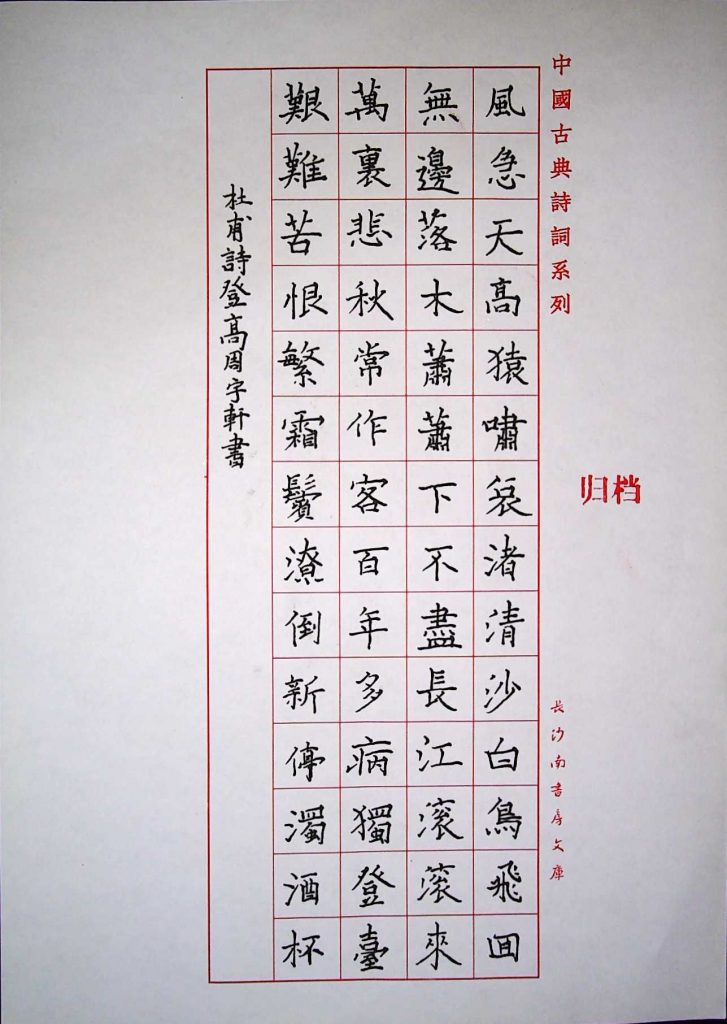 中國古典詩詞系列
归档
長沙南書房文庫
風急天高猿嘯哀渚清沙白鳥飛囬
無邊落木蕭蕭下不盡長江滚滚來
萬裏悲秋常作客百年多病獨登臺
艱難苦恨繁霜鬢潦倒新停濁酒杯
杜甫詩登高周宇軒書